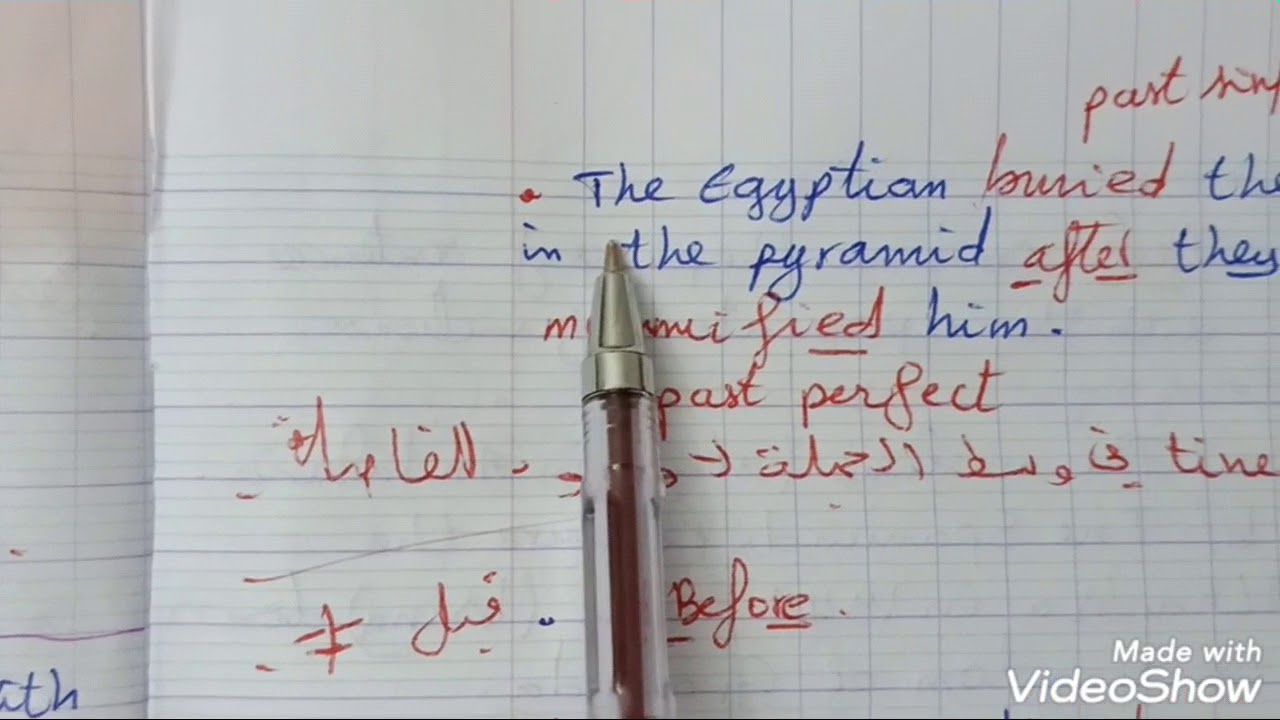 past sim
• The Egyptian buried the
in the pyramid after they
mummified him.
past perfect
time في وسط الجملة الفاصلة
Before. • قبل ≠
ath
Made with
VideoShow